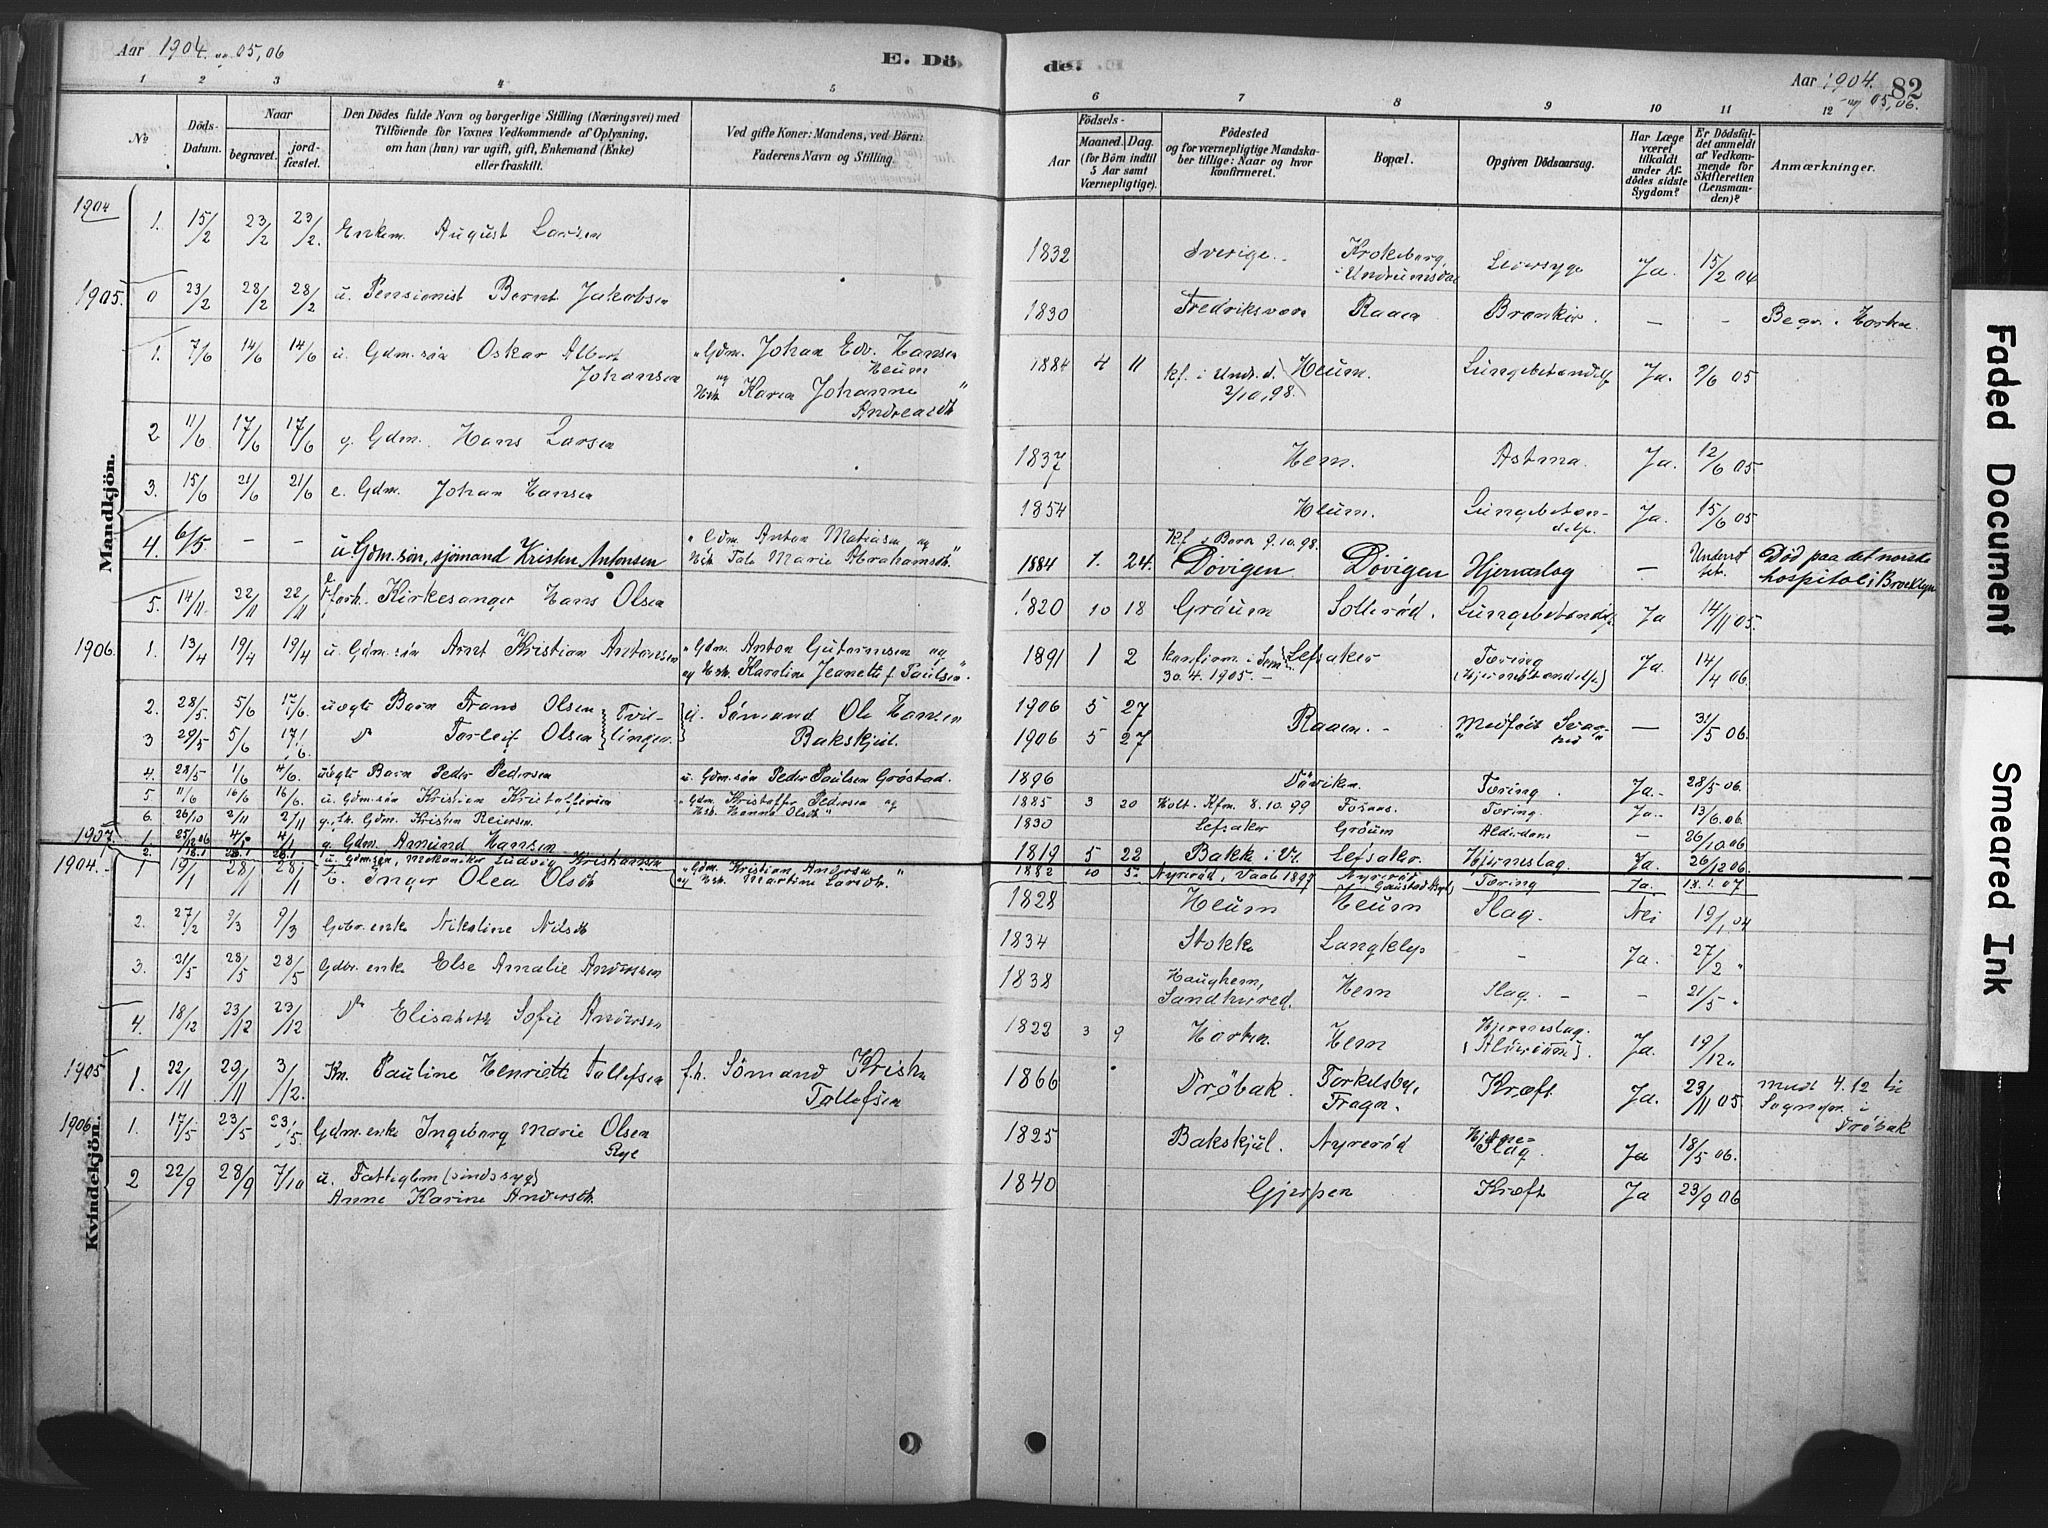 Aar 1904. og 05, 06
E. Dö
de.
Aar 1904. og 05, 06.
82
1 2 3 4 5 6 7 8 9 10 11 12
No
Döds-Datum.
Naar
begravet.
jordfæstet.
Den Dödes fulde Navn og borgerlige Stilling (Næringsvei) med
Tilföiende for Voxnes Vedkommende af Oplysning,
om han (hun) var ugift, gift, Enkemand (Enke)
eller fraskilt.
Ved gifte Koner: Mandens, ved Börn:
Faderens Navn og Stilling.
Födsels-
Aar
Maaned. Dag.
(for Börn indtil
5 Aar samt
Værnepligtige).
Födested
og for værnepligtige Mandskaber tillige: Naar og hvor
konfirmeret.
Bopæl.
Opgiven Dödsaarsag.
Har Læge
været
tilkaldt
under Afdödes sidste
Sygdom?
Er Dödsfaldet anmeldt
af Vedkommende for
Skifteretten
(Lensmanden)?
Anmærkninger.
Mandkjön.
1904
1. 15/2 23/2 23/2. Enkem. August Larsen 1832 Sverige. Krokeborg, i Undrumsdal Leversyge Ja. 15/2 04
1905.
0 23/2 28/2 28/2 u. Pensionist Bernt Jakobsen 1830 Fredriksværn Raaen Bronkit. — — Begr. i Horten.
1. 7/6 14/6 14/6 u. Gdm.søn Oskar Albert Johansen "Gdm. Johan Edv. Hansen Heum og Hst. Karen Johanne Andreasdt." 1884 4 11 Kf. i Undr.d. 2/10, 98. Heum. Lungebetændelse Ja. 9/6 05
2 11/6 17/6 17/6 g. Gdm. Hans Larsen 1837 Hem. Astma. Ja. 12/6 05
3. 15/6 21/6 21/6 e. Gdm. Johan Hansen 1854 Heum. Lungebetændelse Ja. 15/6 05
4. 6/5 — — u. Gdm.søn, sjømand Kristen Antonsen "Gdm. Anton Matiasen og Hst. Tale Marie Abrahamsdt." Kf. i Borre 9.10.98. 1884 7. 24. Døvigen Døvigen Hjerneslag — Underrettet. Død paa det norske hospital i Brooklyn
5. 14/11 22/11 22/11 e. forh. Kirkesanger Hans Olsen 1820 10 18 Gröum Solleröd. Lungebetændelse Ja 14/11 05.
1906.
1. 13/4 19/4 19/4 u. Gdm.søn Arnt Kristian Antonsen "Gdm. Anton Gutormsen og Hst. Karoline Jeanette f. Paulsen." 1891 1 2 Konfirm. i Sem 30.4.1905. — Lefsaker Tæring (Hjernebetændelse) Ja. 14/4 06.
2. 28/5 5/6 17/6. uægte Barn Frans Olsen 1906 5 27
3 29/5 5/6 17/6. do Torleif Olsen Tvillinger u. Sömand Ole Hansen Bakskjul. 1906 5 27 Raaen. - "Medfödt Svaghed" — 31/5 06.
4. 28/5 1/6 4/6. uægte Barn Peder Pedersen u. Gdm.søn Peder Paulsen Gröstad. 1896 Döviken. Tæring. Ja. 28/5 06.
5. 11/6 16/6 16/6. u. Gdm.søn Kristian Kristoffersen "Gdm. Kristoffer Pedersen og Hst. Hanna Olsdt." 1885 3 20 Holt. Kfm. 8.10.99 Tornæs. Tæring. Ja.. 13/6 06.
6. 26/10 2/11 2/11 g. fh. Gdm. Kristen Reiersen. 1830 Lefsaker Gröum Alderdom — 26/10 06
1907.
1. 25/12 06 4/1 4/1 g. Gdm. Amund Hansen 1819 5 22 Bakke i Vr. Lefsaker. Hjerneslag Ja. 26/12 06.
2. 18.1 28.1 28.1 u. gdmsøn, Mekaniker Ludvig Kristiansen "Gdm. Kristian Andersen og Hst. Martine Larsdt." 1882 10 5. Nyreröd, Vaale 1897 Nyreröd Tæring Ja. 18.1.07
Kvindekjön.
1904.
1 19/1 28/1 28/1 E. Inger Olea Olsdt 1828 Heum Heum Slag. Nei 19/1 04
2. 27/2 9/3 9/3 Gdbr.enke Nikoline Nilsdt 1834 Stokke Langklep - Ja. 27/2 "
3. 21/5 28/5 28/5 Gdbr.enke Else Amalie Andersen 1838 Haughem, Sandhered. Hem Slag. - - 21/5 "
4. 18/12 23/12 23/12 do Elisabeth Sofie Andersen 1822 3 9 Horten. Hem Hjerneslag. (Alderdom). Ja. 19/12 "
1905
1. 22/11 29/11 3/12. Kn. Pauline Henriette Tollefsen f.h. Sömand Kristen Tollefsen 1866 Dröbak. Torkelsby, Fragn. Kræft Ja. 23/11 05 medt 4.12 til Sognepr. i Dröbak
1906
1. 17/5 23/5 23/5. Gdm.enke Ingeborg Marie Olsen Rye 1825 Bakskjul. Nyreröd Hjerneslag. Ja 18/5 06.
2 22/9 28/9 7/10 u. Fattiglem (sindssyg) Anne Karine Andersdt. 1840 Gjerpen Kræft Ja 23/9 06
Faded Document
Smeared Ink